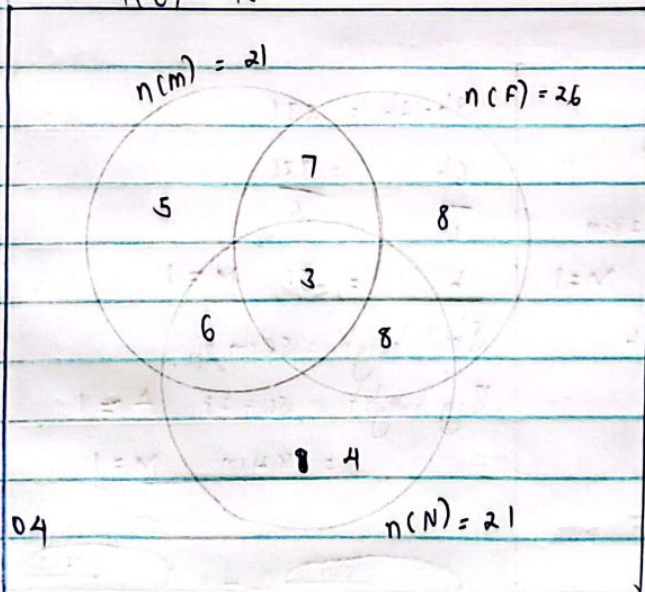 n(m) = 21
n(F) = 26
7
5
8
3
6
8
4
04
n(N) = 21